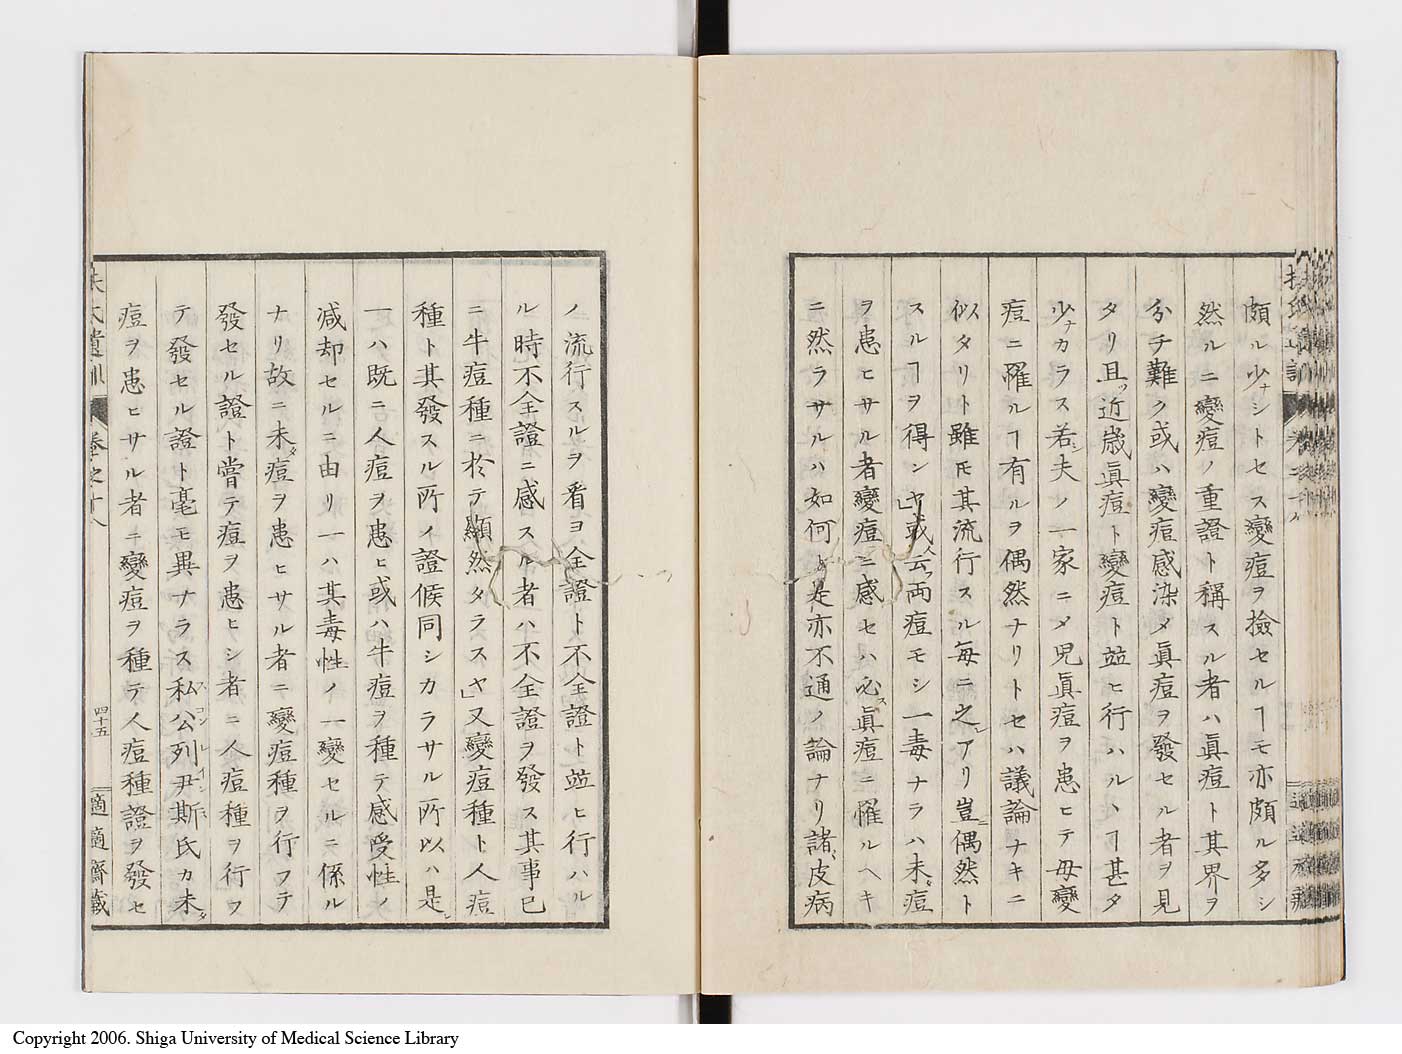 頗ル少ナシトセス變痘ヲ撿セルヿモ亦頗ル多シ
然ルニ變痘ノ重證ト稱スル者ハ眞痘ト其界ヲ
分チ難ク或ハ變痘感染メ眞痘ヲ發セル者ヲ見
タリ且ツ近歳眞痘ト變痘ト竝ヒ行ハルハヿ甚タ
少ナカラス若シ夫ノ一家ニメ児眞痘ヲ患ヒテ母變
痘ニ罹ルヿ有ルヲ偶然ナリトセハ議論ナキニ
似タリト雖モ其流行スル毎ニ之レアリ豈ニ偶然ト
スルヿヲ得ンヤ」或人云フ両痘モシ一毒ナラハ未タ痘
ヲ患ヒサル者變痘ニ感セハ必ス眞痘ニ罹ルヘキ
ニ然ラサルハ如何ト是亦不通ノ論ナリ諸ノ皮病
ノ流行スルヲ看ヨ全證ト不全證ト竝ヒ行ハル
ル時不全證ニ感スル者ハ不全證ヲ發ス其事已
ニ牛痘種ニ於テ顯然タラスヤ」又變痘種ト人痘
種ト其發スル所ノ證候同シカラサル所以ハ是レ
一ハ既ニ人痘ヲ患ヒ或ハ牛痘ヲ種テ感受性ノ
減却セルニ由リ一ハ其毒性ノ一變セルニ係ル
ナリ故ニ未タ痘ヲ患ヒサル者ニ變痘種ヲ行フテ
發セル證ト嘗テ痘ヲ患ヒシ者ニ人痘種ヲ行フ
テ發セル證ト毫モ異ナラス私公列尹斯氏カ未タ
スコンレインス
痘ヲ患ヒサル者ニ變痘ヲ種テ人痘種證ヲ發セ
扶氏遺訓 卷之十八 四十五 適適齋藏
Copyright 2006. Shiga University of Medical Science Library